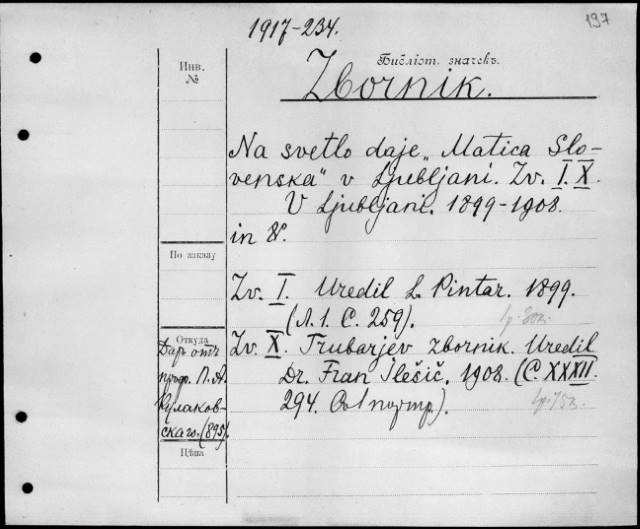 1917-234.
197
Инв.
№
Библіот. значекъ.
Zbornik.
Na svetlo daje „Matica Slo-
venska“ v Ljubljani. Zv. I. X.
V Ljubljani. 1899-1908.
in 8º.
По заказу
Zv. I. Uredil L. Pintar. 1899.
(Л. 1. С. 259).
Откуда
Даръ отъ
проф. П. А.
Кулаков-
скаго. (895).
Цѣна
Zv. X. Trubarjev zbornik. Uredil
Dr. Fran Ilešič. 1908. (С. XXXII.
294. Со 1 портр.).